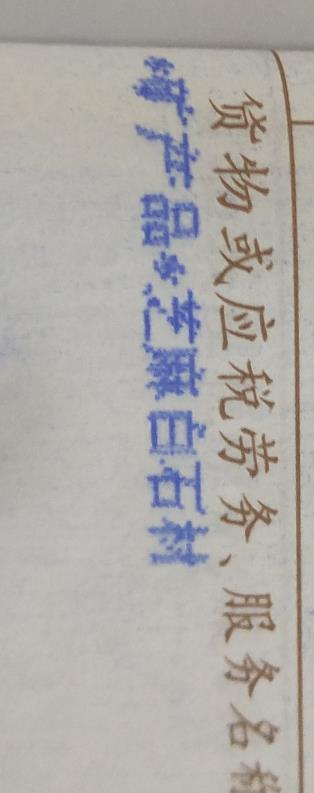 货物或应税劳务、服务名称
*矿产品*芝麻白石材